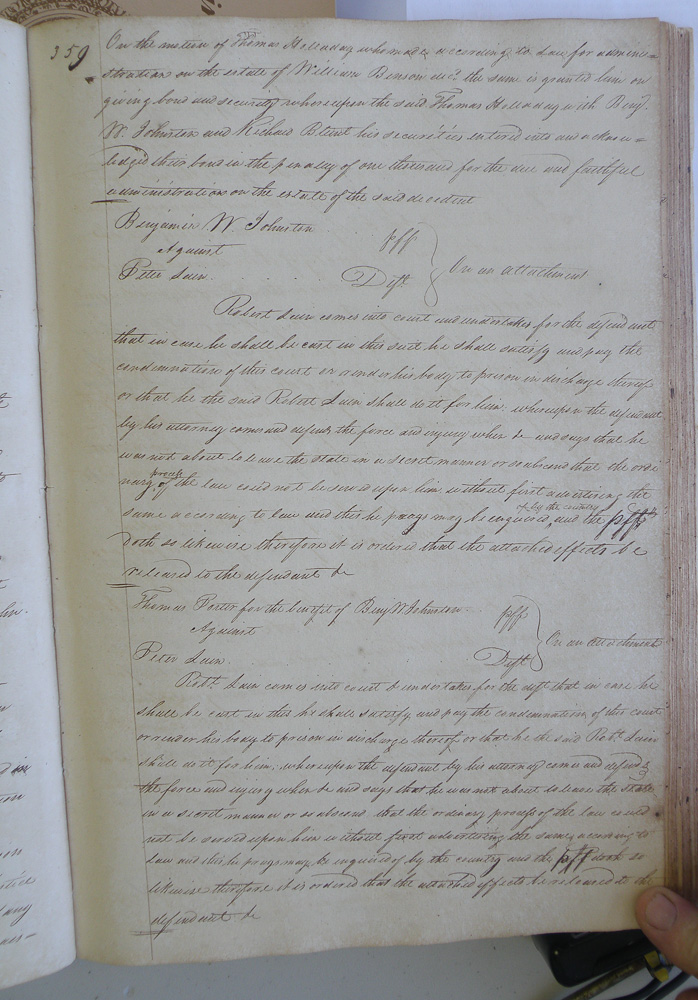 359
On the motion of Thomas Holladay who made according to Law for admini-
stration on the estate of William Benson decd. the same is granted him on
giving bond and security whereupon the said Thomas Holladay with Benj.
W. Johnston and Richard Blunt his securities entered into and acknow=
ledged their bond in the penalty of one thousand for the due and faithful
administration on the estate of the said decedent
Benjamin W Johnston pff
Against On an attachment
Peter Lain Deft
Robert Lain comes into court and undertakes for the defendant
that in case he shall be cast in this suit he shall satisfy and pay the
condemnation of this court or render his body to prison in discharge thereof
or that he the said Robert Lain shall do it for him whereupon the defendant
by his attorney comes and defends the force and injury when &c and says that he
was not about to leave the state in a secret manner or so abscond that the ordi
nary process of the law could not be served upon him without first advertising the
same according to law and this he prays may be enquired of by the country and the pff
doth so likewise therefore it is ordered that the attached effects be
released to the defendant &c
Thomas Porter for the benefit of Benj W Johnston pff
Against On an attachment
Peter Lain Deft
Robt. Lain comes into court & undertakes for the deft that in case he
shall be cast in this he shall satisfy and pay the condemnation of this court
or render his body to prison in discharge thereof or that he the said Robt. Lain
shall do it for him, whereupon the defendant by his attorney comes and defends
the force and injury when &c and says that he was not about to leave the state
in a secret manner or so abscond that the ordinary process of the law could
not be served upon him without first advertising the same according to
Law and this he prays may be inquired of by the country and the pff doth so
likewise therefore it is ordered that the attached effects be released to the
defendant &c